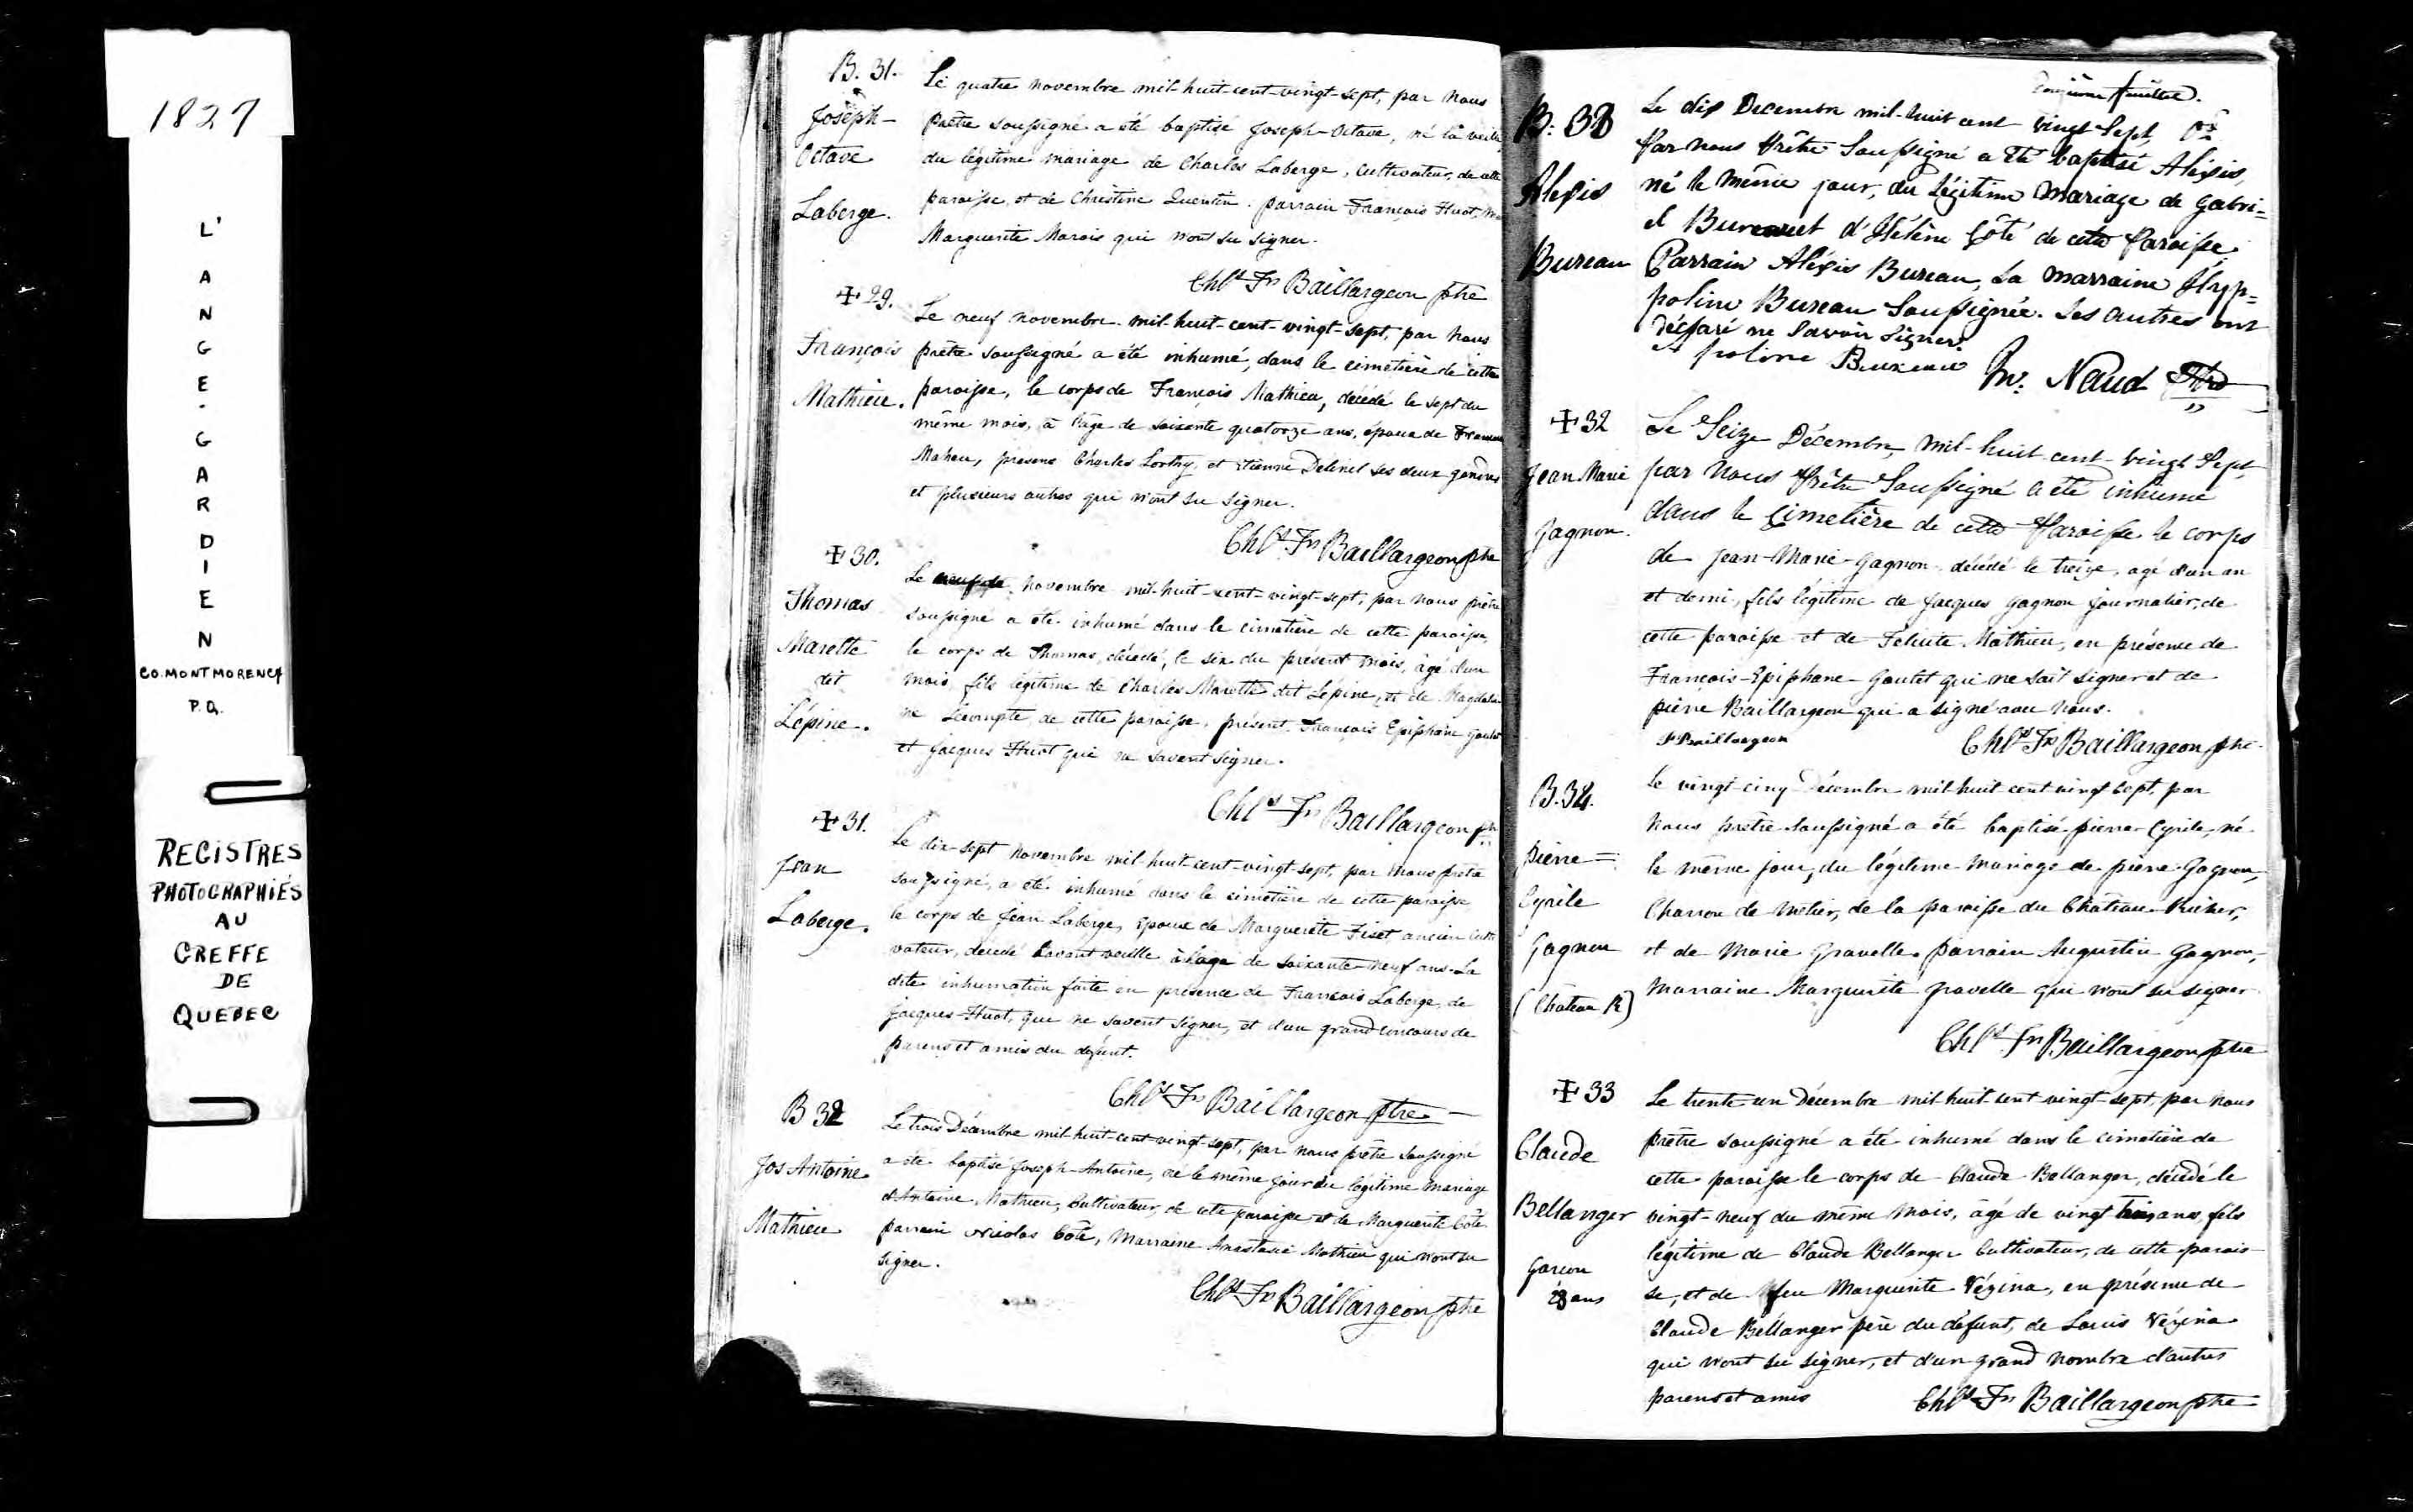 1827
L'
A
N
G
E
-
G
A
R
D
I
E
N
CO. MONTMORENCY
P.Q.
REGISTRES
PHOTOGRAPHIÉS
AU
GREFFE
DE
QUEBEC
B. 31.
Joseph-
Octave
Laberge.
Le quatre novembre mil-huit-cent-vingt-sept, par nous
Prêtre soussigné a été baptisé Joseph-Octave, né la veille,
du légitime mariage de Charles Laberge, cultivateur, de cette
paroisse, et de Christine Quentin. parrain François Huot,
Marguerite Marois qui n'ont su signer.
Chls Frs Baillargeon ptre
+ 29.
François
Mathieu.
Le neuf novembre mil-huit-cent-vingt-sept, par nous
prêtre soussigné a été inhumé, dans le cimetière de cette
paroisse, le corps de François Mathieu, décédé le sept du
même mois, à l'âge de soixante quatorze ans, époux de
Maheu, présens Charles et Etienne ses deux gendres
et plusieurs autres qui n'ont su signer.
Chls Frs Baillargeon ptre
+ 30.
Thomas
Marette
dit
Lépine.
Le novembre mil-huit-cent-vingt-sept, par nous prêtre
soussigné a été inhumé dans le cimetière de cette paroisse,
le corps de Thomas, décédé, le six du présent mois, âgé d'un
mois, fils légitime de Charles Marette dit Lépine, et de Magdelai-
ne Lecompte, de cette paroisse, présent François Epiphane Goulet
et Jacques Huot qui ne savent signer.
Chls Frs Baillargeon ptre
+ 31.
Jean
Laberge.
Le dix-sept novembre mil-huit-cent-vingt-sept, par nous prêtre
soussigné, a été inhumé dans le cimetière de cette paroisse
le corps de Jean Laberge, époux de Marguerite Fiset ancien culti
vateur, décédé l'avant veille à l'âge de soixante-neuf ans. La
dite inhumation faite en présence de François Laberge, de
Jacques Huot, qui ne savent signer, et d'un grand concours de
parens et amis du défunt.
Chls Frs Baillargeon ptre
B 32
Jos Antoine
Mathieu
Le trois Décembre mil-huit-cent-vingt-sept, par nous prêtre soussigné
a été baptisé Joseph-Antoine, né le même jour du légitime mariage
d'Antoine Mathieu, Cultivateur, de cette paroisse et de Marguerite Côté
parrain Nicolas Côté, Marraine Anastasie Mathieu qui n'ont su
signer.
Chls Frs Baillargeon ptre
feuillet.
B: 33
Alexis
Bureau
Le dix Decembre mil-huit cent vingt Sept,
Par nous Prêtre Soussigné a été baptisé Alexis,
né le même jour, du Légitime Mariage de Gabri=
el Bureau et d'Hélène Côté de cette Paroisse
Parrain Alexis Bureau, La marraine Hyp=
poline Bureau Soussignée. Les autres ont
déclaré ne savoir signer.
Apoline Bureau
Naud Ptre
+ 32
Jean Marie
Gagnon.
Le Seize Décembre mil-huit-cent-vingt Sept,
par nous Prêtre Soussigné a été inhumé
dans le Cimetière de cette Paroisse le corps
de Jean-Marie-Gagnon, décédé le treize, agé d'un an
et demi, fils légitime de Jacques Gagnon journalier, de
cette paroisse et de Felicite Mathieu, en présence de
François-Epiphane-Goulet qui ne sait signer et de
pierre Baillargeon qui a signé avec nous.
P Baillargeon
Chls Frs Baillargeon ptre
B. 34.
pierre =
Cyrile
Gagnon
(Chateau R)
Le vingt-cinq Décembre mil-huit cent vingt sept, par
nous prêtre soussigné a été baptisé pierre-Cyrile, né
le même jour, du légitime mariage de pierre Gagnon,
Charron de métier, de la paroisse du Château-Richer,
et de Marie Gravelle. parrain Augustin Gagnon,
Marraine Marguerite Gravelle qui n'ont su signer
Chls Frs Baillargeon ptre
+ 33
Claude
Bellanger
Garcon
23 ans
Le trente-un Décembre mil-huit cent vingt-sept, par nous
prêtre soussigné a été inhumé dans le cimetière de
cette paroisse le corps de Claude Bellanger, décédé le
vingt-neuf du même mois, âgé de vingt trois ans, fils
légitime de Claude Bellanger Cultivateur, de cette parois-
se, et de feu Marguerite Vézina, en présence de
Claude Bellanger père du défunt, de Louis Vézina
qui n'ont su signer, et d'un grand nombre d'autres
parens et amis
Chls Frs Baillargeon ptre